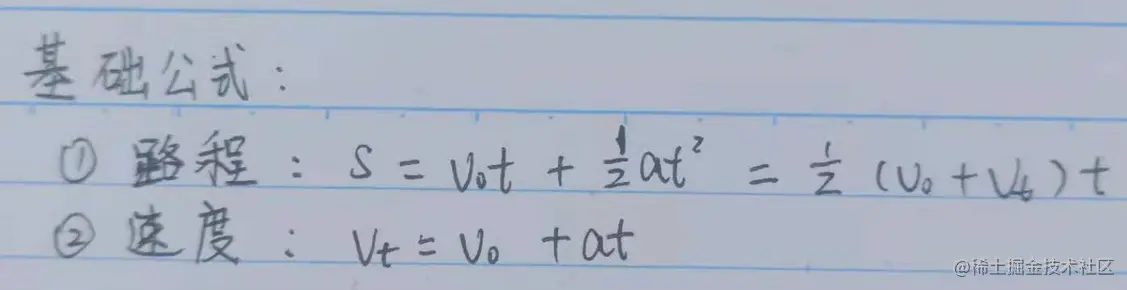 基础公式：
① 路程：S = V₀t + ½at² = ½(V₀+Vₜ)t
② 速度：Vₜ = V₀ + at
@稀土掘金技术社区